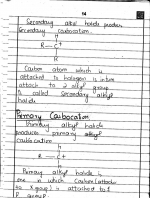 Secondary alkyl halide produce
Secondary carbocation.
H
R — C +
R
Carbon atom which is
attached to halogen is inturn
attach to 2 alkyl group
is called Secondary alkyl
halide
Primary Carbocation:
Primary alkyl halide
produce primary alkyl
carbocation
H
R — C +
H
Primary alkyl halide is
one in which Carbon (attached
to X group) is attached to 1
R group.